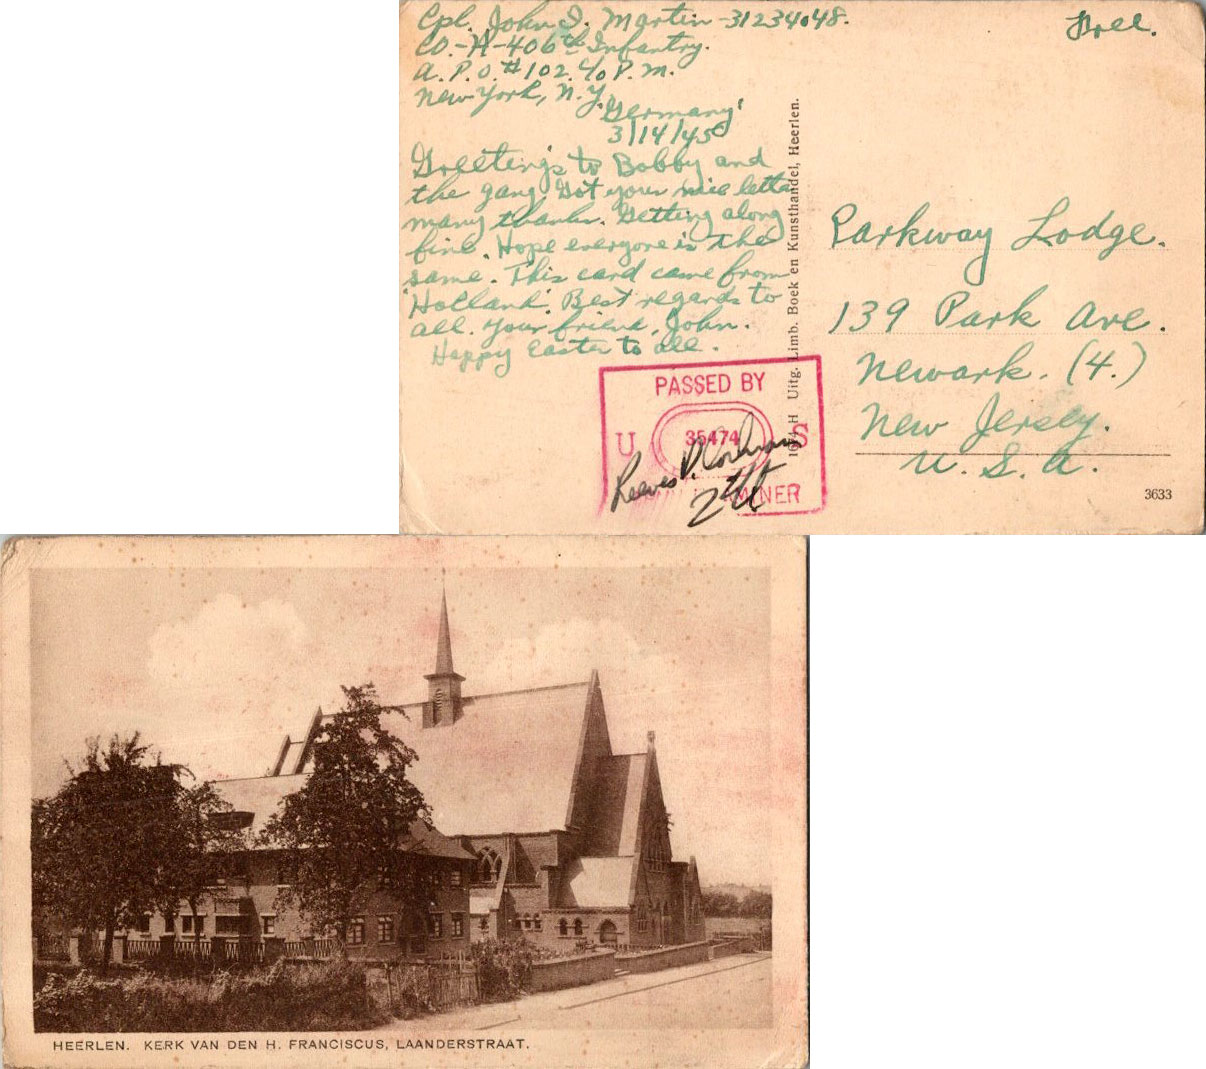 Cpl. John I. Martin - 31234048.
Co.-A-406th Infantry.
A.P.O. #102. c/o P.M.
New York, N.Y.
Free.
"Germany"
3/14/45
Greetings to Bobby and
the gang. Got your nice letter
many thanks. Getting along
fine. Hope everyone is the
same. This card came from
"Holland". Best regards to
all. Your friend, John.
Happy Easter to all.
Uitg. Limb. Boek en Kunsthandel, Heerlen.
Parkway Lodge.
139 Park Ave.
Newark. (4.)
New Jersey.
U. S. A.
PASSED BY
U 35474 S
ARMY EXAMINER
Reeves D. Cochran
2nd Lt
3633
HEERLEN. KERK VAN DEN H. FRANCISCUS, LAANDERSTRAAT.